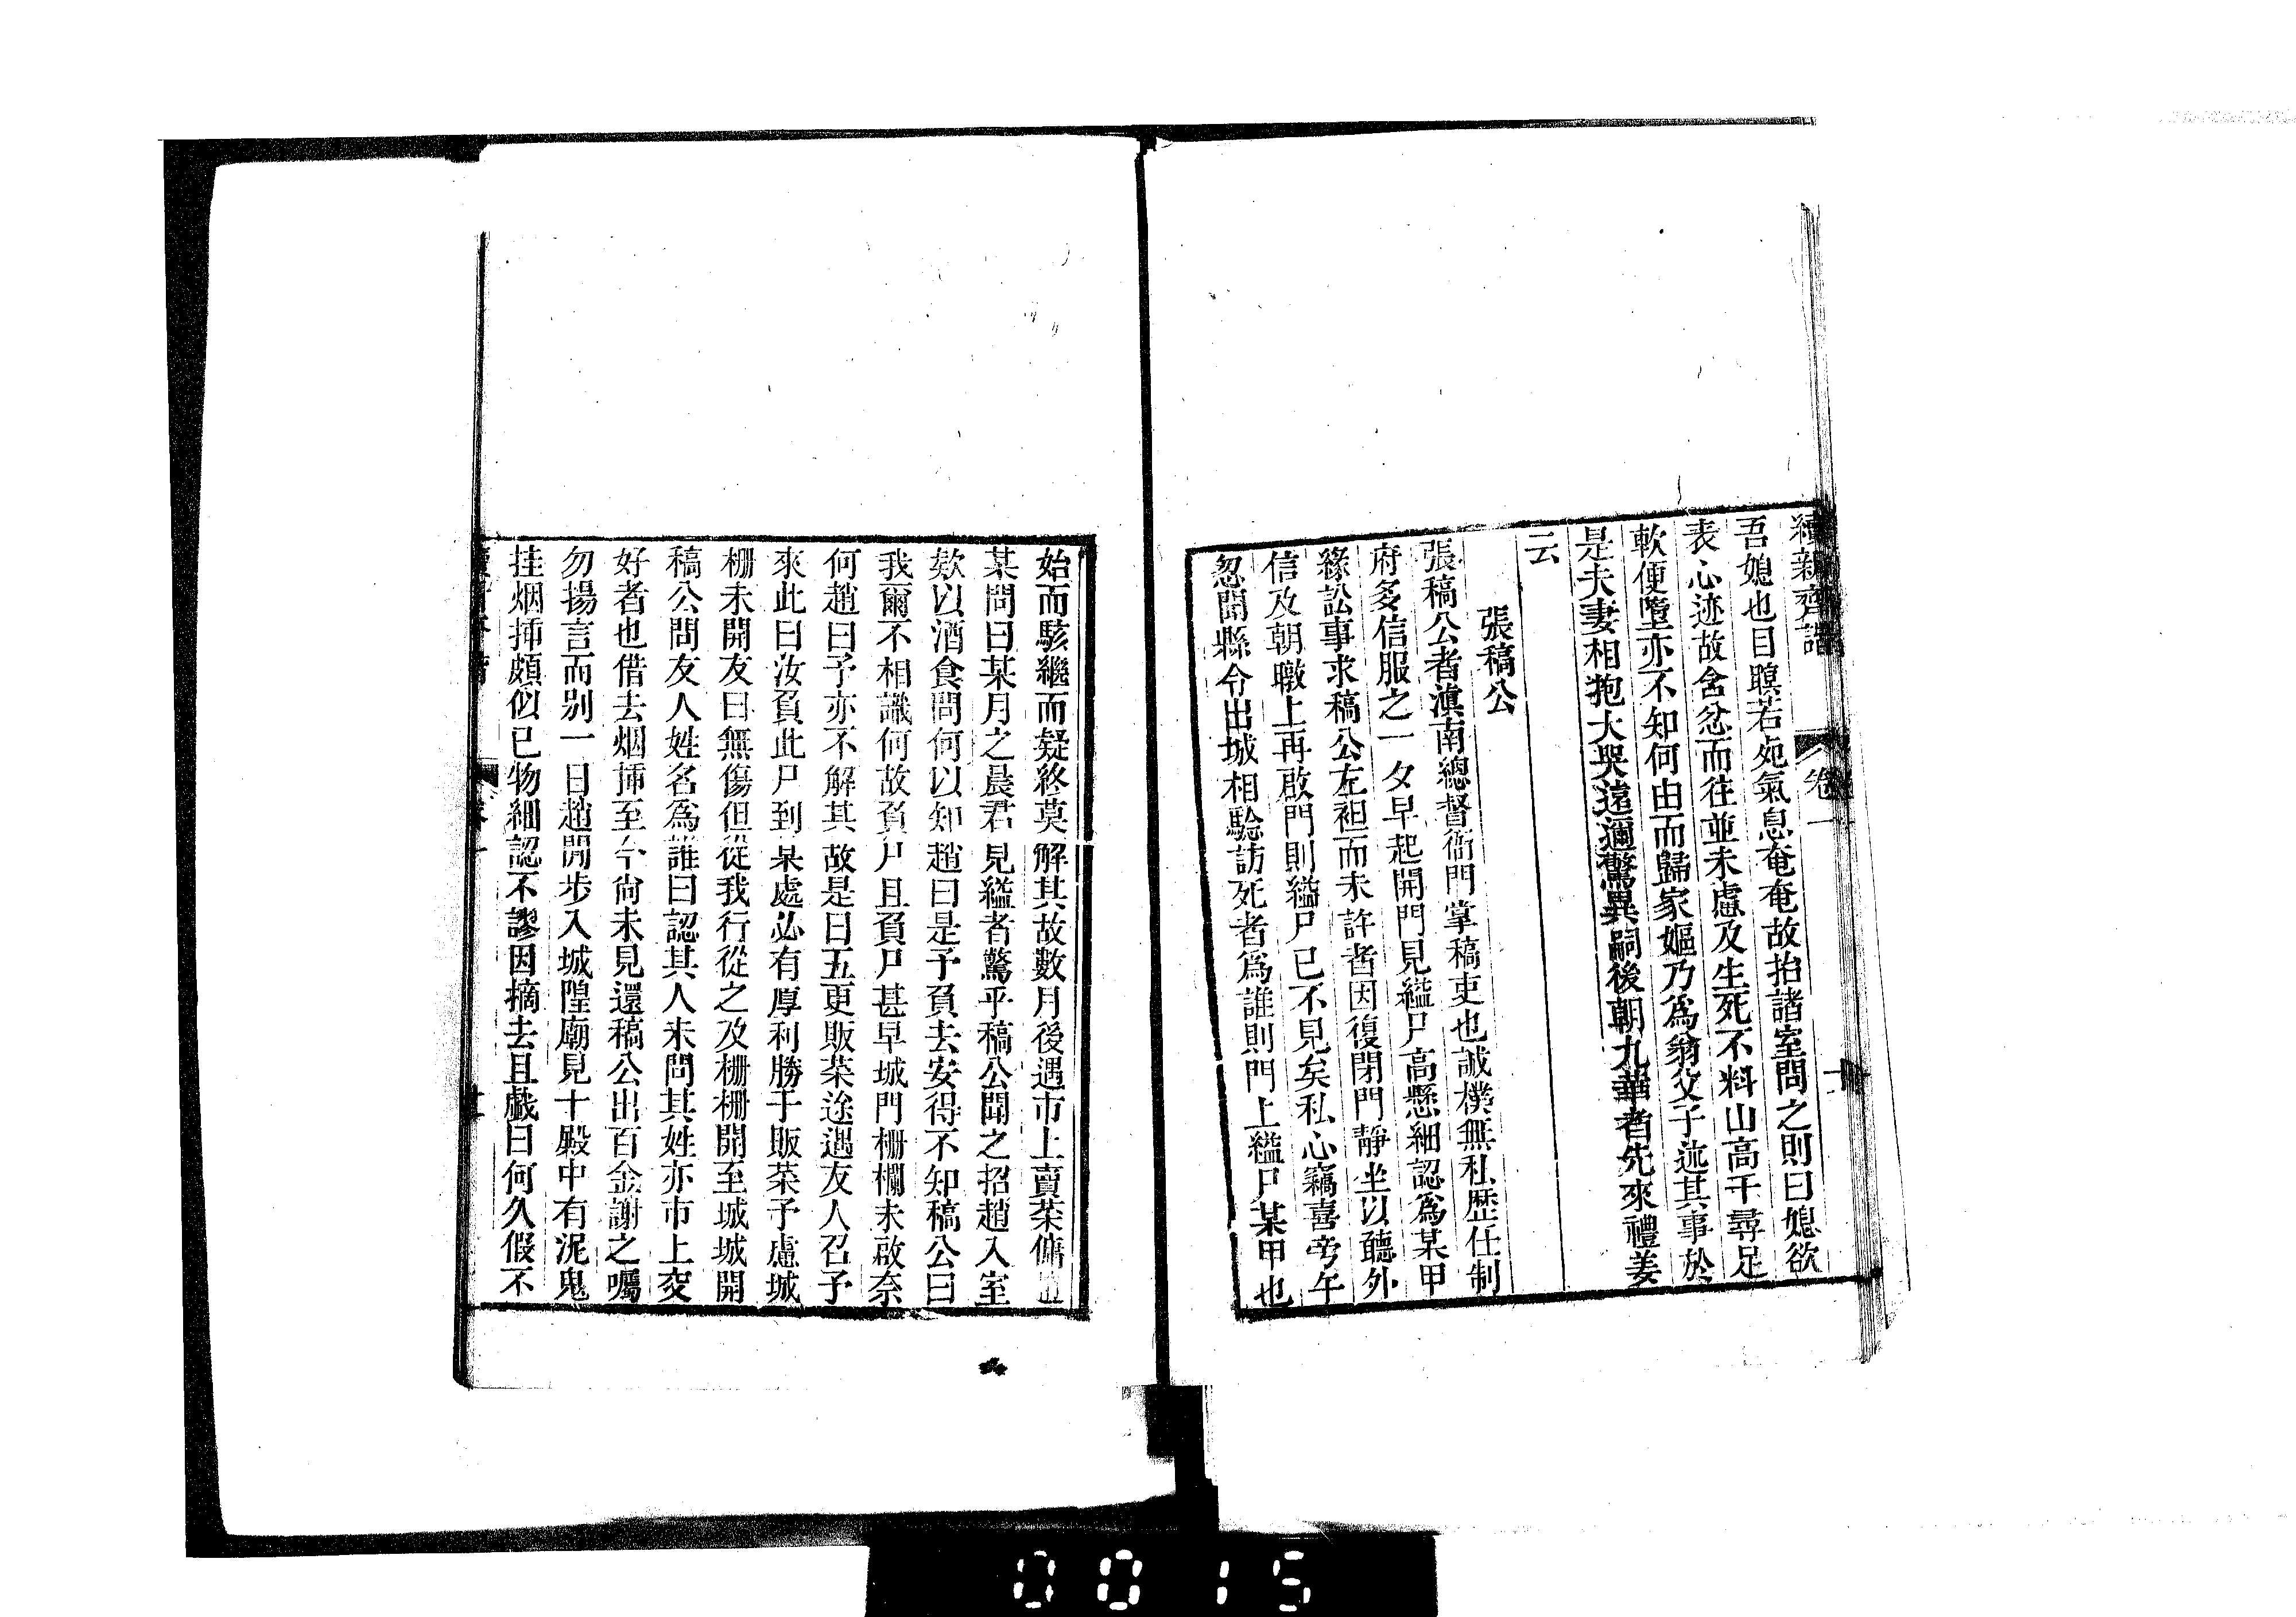 續新齊諧 卷一
吾媳也目瞑若死氣息奄奄故抬諸室問之則曰媳欲
表心迹故舍忿而往並未慮及生死不料山高千尋足
軟便墮亦不知何由而歸家嫗乃爲翁父子述其事於
是夫妻相抱大哭遠邇驚異嗣後朝九華者先來禮姜
云
張稿公
張稿公者滇南總督衙門掌稿吏也誠樸無私歷任制
府多信服之一夕早起開門見縊尸高懸細認爲某甲
緣訟事求稿公左袒而未許者因復閉門靜坐以聽外
信及朝暾上再啟門則縊尸已不見矣私心竊喜旁午
忽聞縣令出城相驗訪死者爲誰則門上縊尸某甲也
始而駭繼而疑終莫解其故數月後遇市上賣菜傭
某問曰某月之晨君見縊者驚乎稿公聞之招趙入室
欵以酒食問何以知趙曰是予負去安得不知稿公曰
我爾不相識何故負尸且負尸甚早城門柵欄未啟奈
何趙曰予亦不解其故是日五更販菜途遇友人召予
來此曰汝負此尸到某處必有厚利勝于販菜予慮城
柵未開友曰無傷但從我行從之及柵柵開至城城開
稿公問友人姓名爲誰曰認其人未問其姓亦市上交
好者也借去烟揷至今尚未見還稿公出百金謝之囑
勿揚言而別一日趙閒步入城隍廟見十殿中有泥鬼
挂烟揷頗似已物細認不謬因摘去且戲曰何久假不